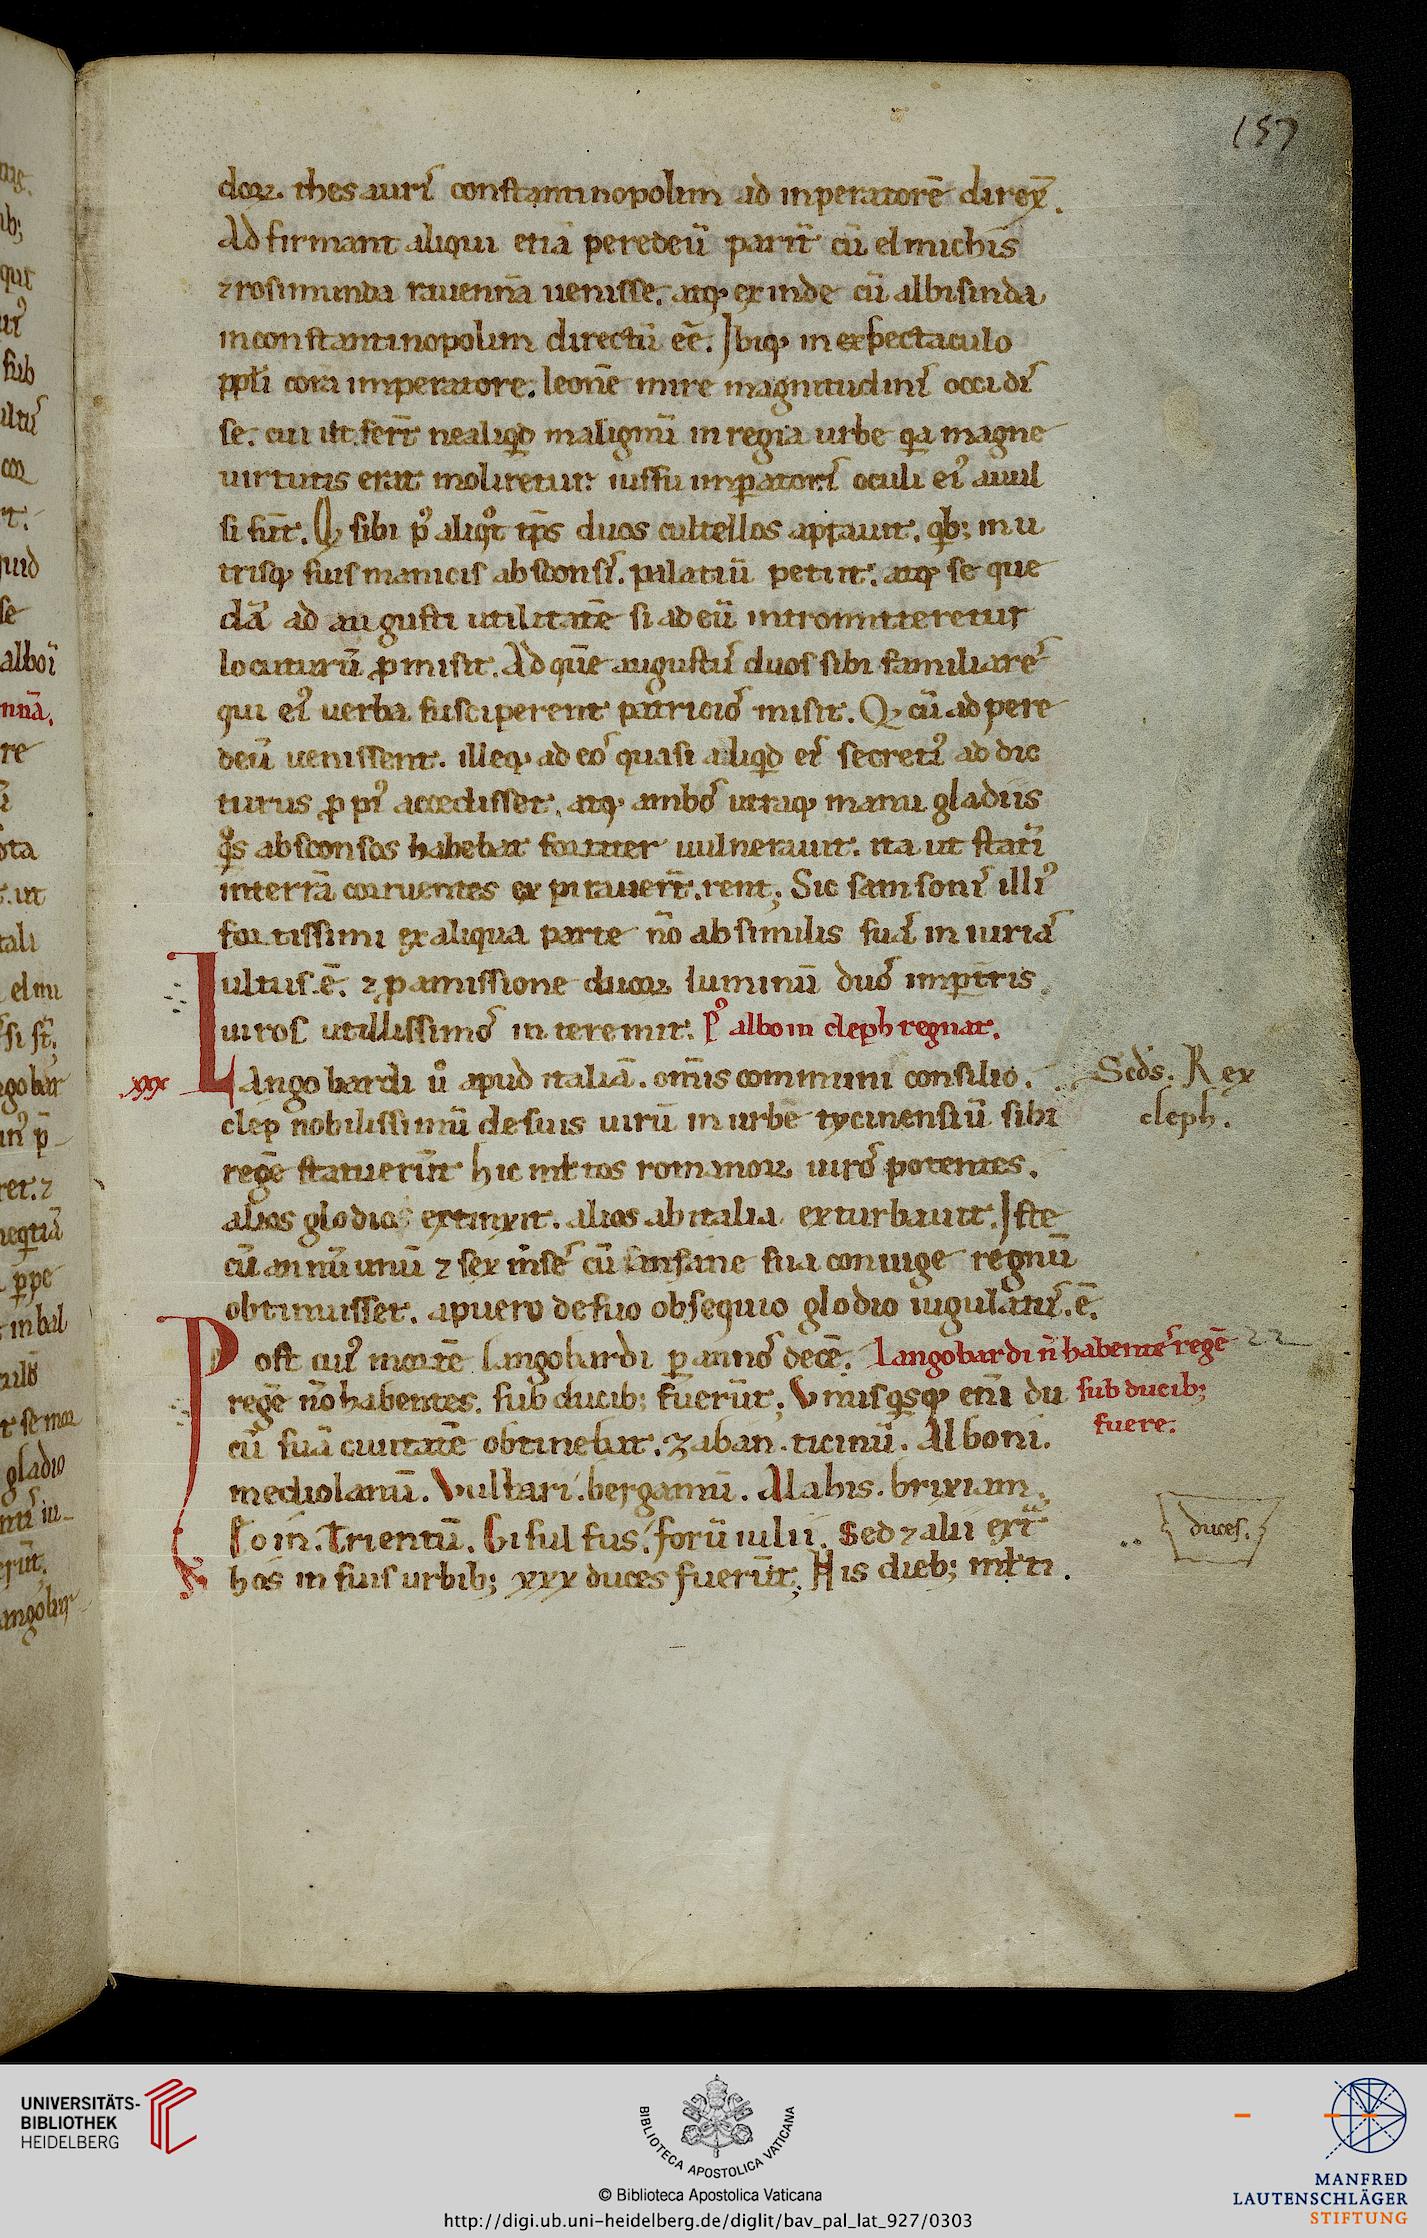 157
doꝝ thesauri᷒ constantinopolim ad inperatorē direx̄.
Adfirmant aliqui etiā peredeū parit̄ cū elmichis
⁊rosimunda rauennā uenisse. atq; exinde cū albisinda
inconstantinopolim directū eē. Ibiq; inexspectaculo
ppłi corā imperatore. leonē mire magnitudini᷒ occidi᷒
se. cui ut fert̄ nealiqđ malignū inregia urbe qa magne
uirtutis erat moliretur iussu imꝑatori᷒ oculi ei᷒ auul
si sūt. Q; sibi p᷒ aliqͦt tp̄s duos cultellos aptauit. qb; inu
trisq; suis manicis absconsi᷒. palatiū petiit. atq; se que
dā ad augusti utilitatē si adeū intromitteretur
locuturū ꝓmisit. Ad quē augustu᷒ duos sibi familiare᷒
qui ei᷒ uerba susciperent patricio᷒ misit. Q; cū adpere
deū uenissent. illeq; ad eo᷒ quasi aliqđ ei᷒ secreti᷒ ad dic
turus ꝓpi᷒ accedisset. atq; ambo᷒ utraq; manu gladiis
qͦs absconsos habebat fortiter uulnerauit. ita ut stati᷒
interrā corruentes expirauert̄.rent; Sic samsoni᷒ illi᷒
fortissimi exaliqua parte nō absimilis sua᷒ iniuria᷒
ultus.ē. ⁊ꝑ amissione duoꝝ luminū duo᷒ imꝑtris
uiros utillissimo᷒ interemit. P᷒ alboin cleph regnat.
xxx Langobardi uͦ apud italiā. omīs communi consilio. Scds. Rex
clep nobilissimū desuis uirū inurbē tycinensiū sibi cleph.
regē statuerūt hic młtos romanoꝝ uiro᷒ potentes.
alios glodios extinxit. alios abitalia exturbauit. Iste
cū annū unū ⁊ sex mse᷒ cū sansane sua coniuge regnū
obtinuisset. apuero desuo obsequio glodio iugulatu᷒.ē.
Post cui᷒ mortē langobardi ꝑ anno᷒ decē. Langobardi n̄ habente᷒ regē 22
regē nō habentes. sub ducib; fuerūt; Unusqsq; eni᷒ du sub ducib;
cū suā ciuitatē obtinebat. zaban. ticinū. Alboni. fuere.
mediolanū. Uullari. bergamū. Alahis. brixiam.
Eoin. Trientū. Gisulfus. forū iulii. Sed ⁊alii ext᷒ duces.
hos in suis urbib; xxx duces fuerūt; His dieb; młti.
UNIVERSITÄTS-
BIBLIOTHEK
HEIDELBERG
BIBLIOTECA APOSTOLICA VATICANA
© Biblioteca Apostolica Vaticana
http://digi.ub.uni-heidelberg.de/diglit/bav_pal_lat_927/0303
MANFRED
LAUTENSCHLÄGER
STIFTUNG